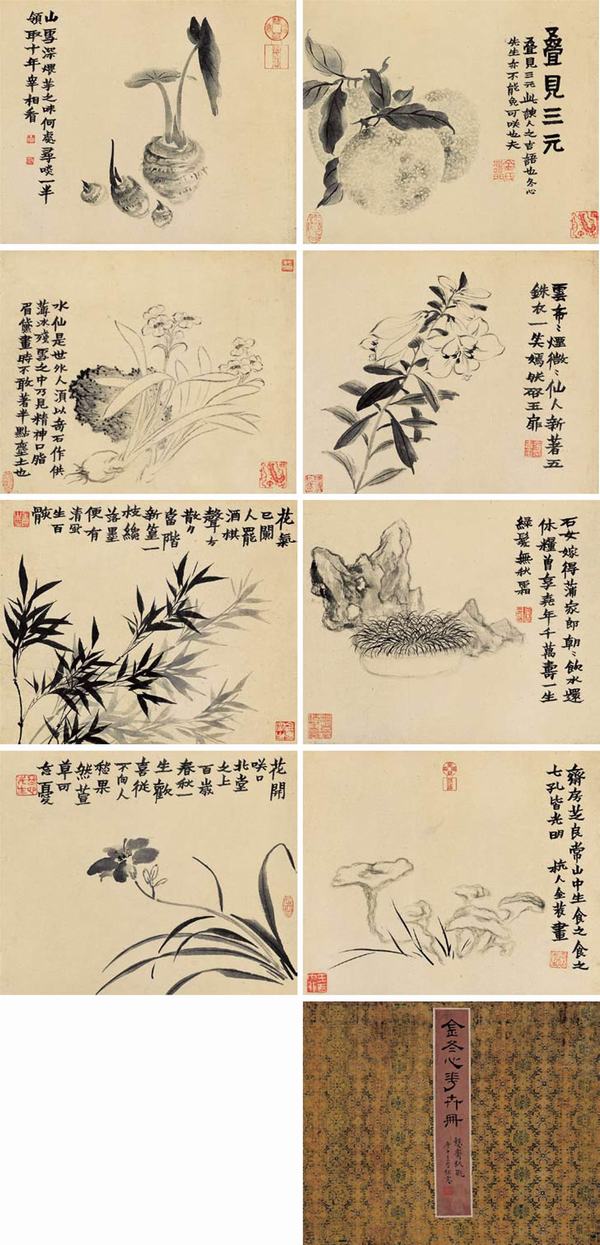 山雪深煨芋之味何處尋啖一半
領取十年宰相看
疊見三元
疊見三元此諛人之吉語也冬心
先生亦不能免可咲也夫
水仙是世外人須以奇石作供
薄冰殘雪之中乃見精神口脂
眉黛畫時不敢著半點塵土也
雲布〻煙微〻仙人新著五
銖衣一笑嫣然啓玉扉
花氣
已闌
人罷
酒棋
聲方
散〻
當階
新篁一
枝纔
落墨
便有
清風
生百
骸
石女嫁得蒲家郎朝〻飲水還
休糧曾享堯年千萬壽一生
綠髮無秋霜
花開
咲口
北堂
之上
百歲
春秋一
生歡
喜從
不向人
愁果
然萱
草可
忘憂
齋房芝良常山中生食之食之
七孔皆光明 杭人金農畫
金冬心花卉冊